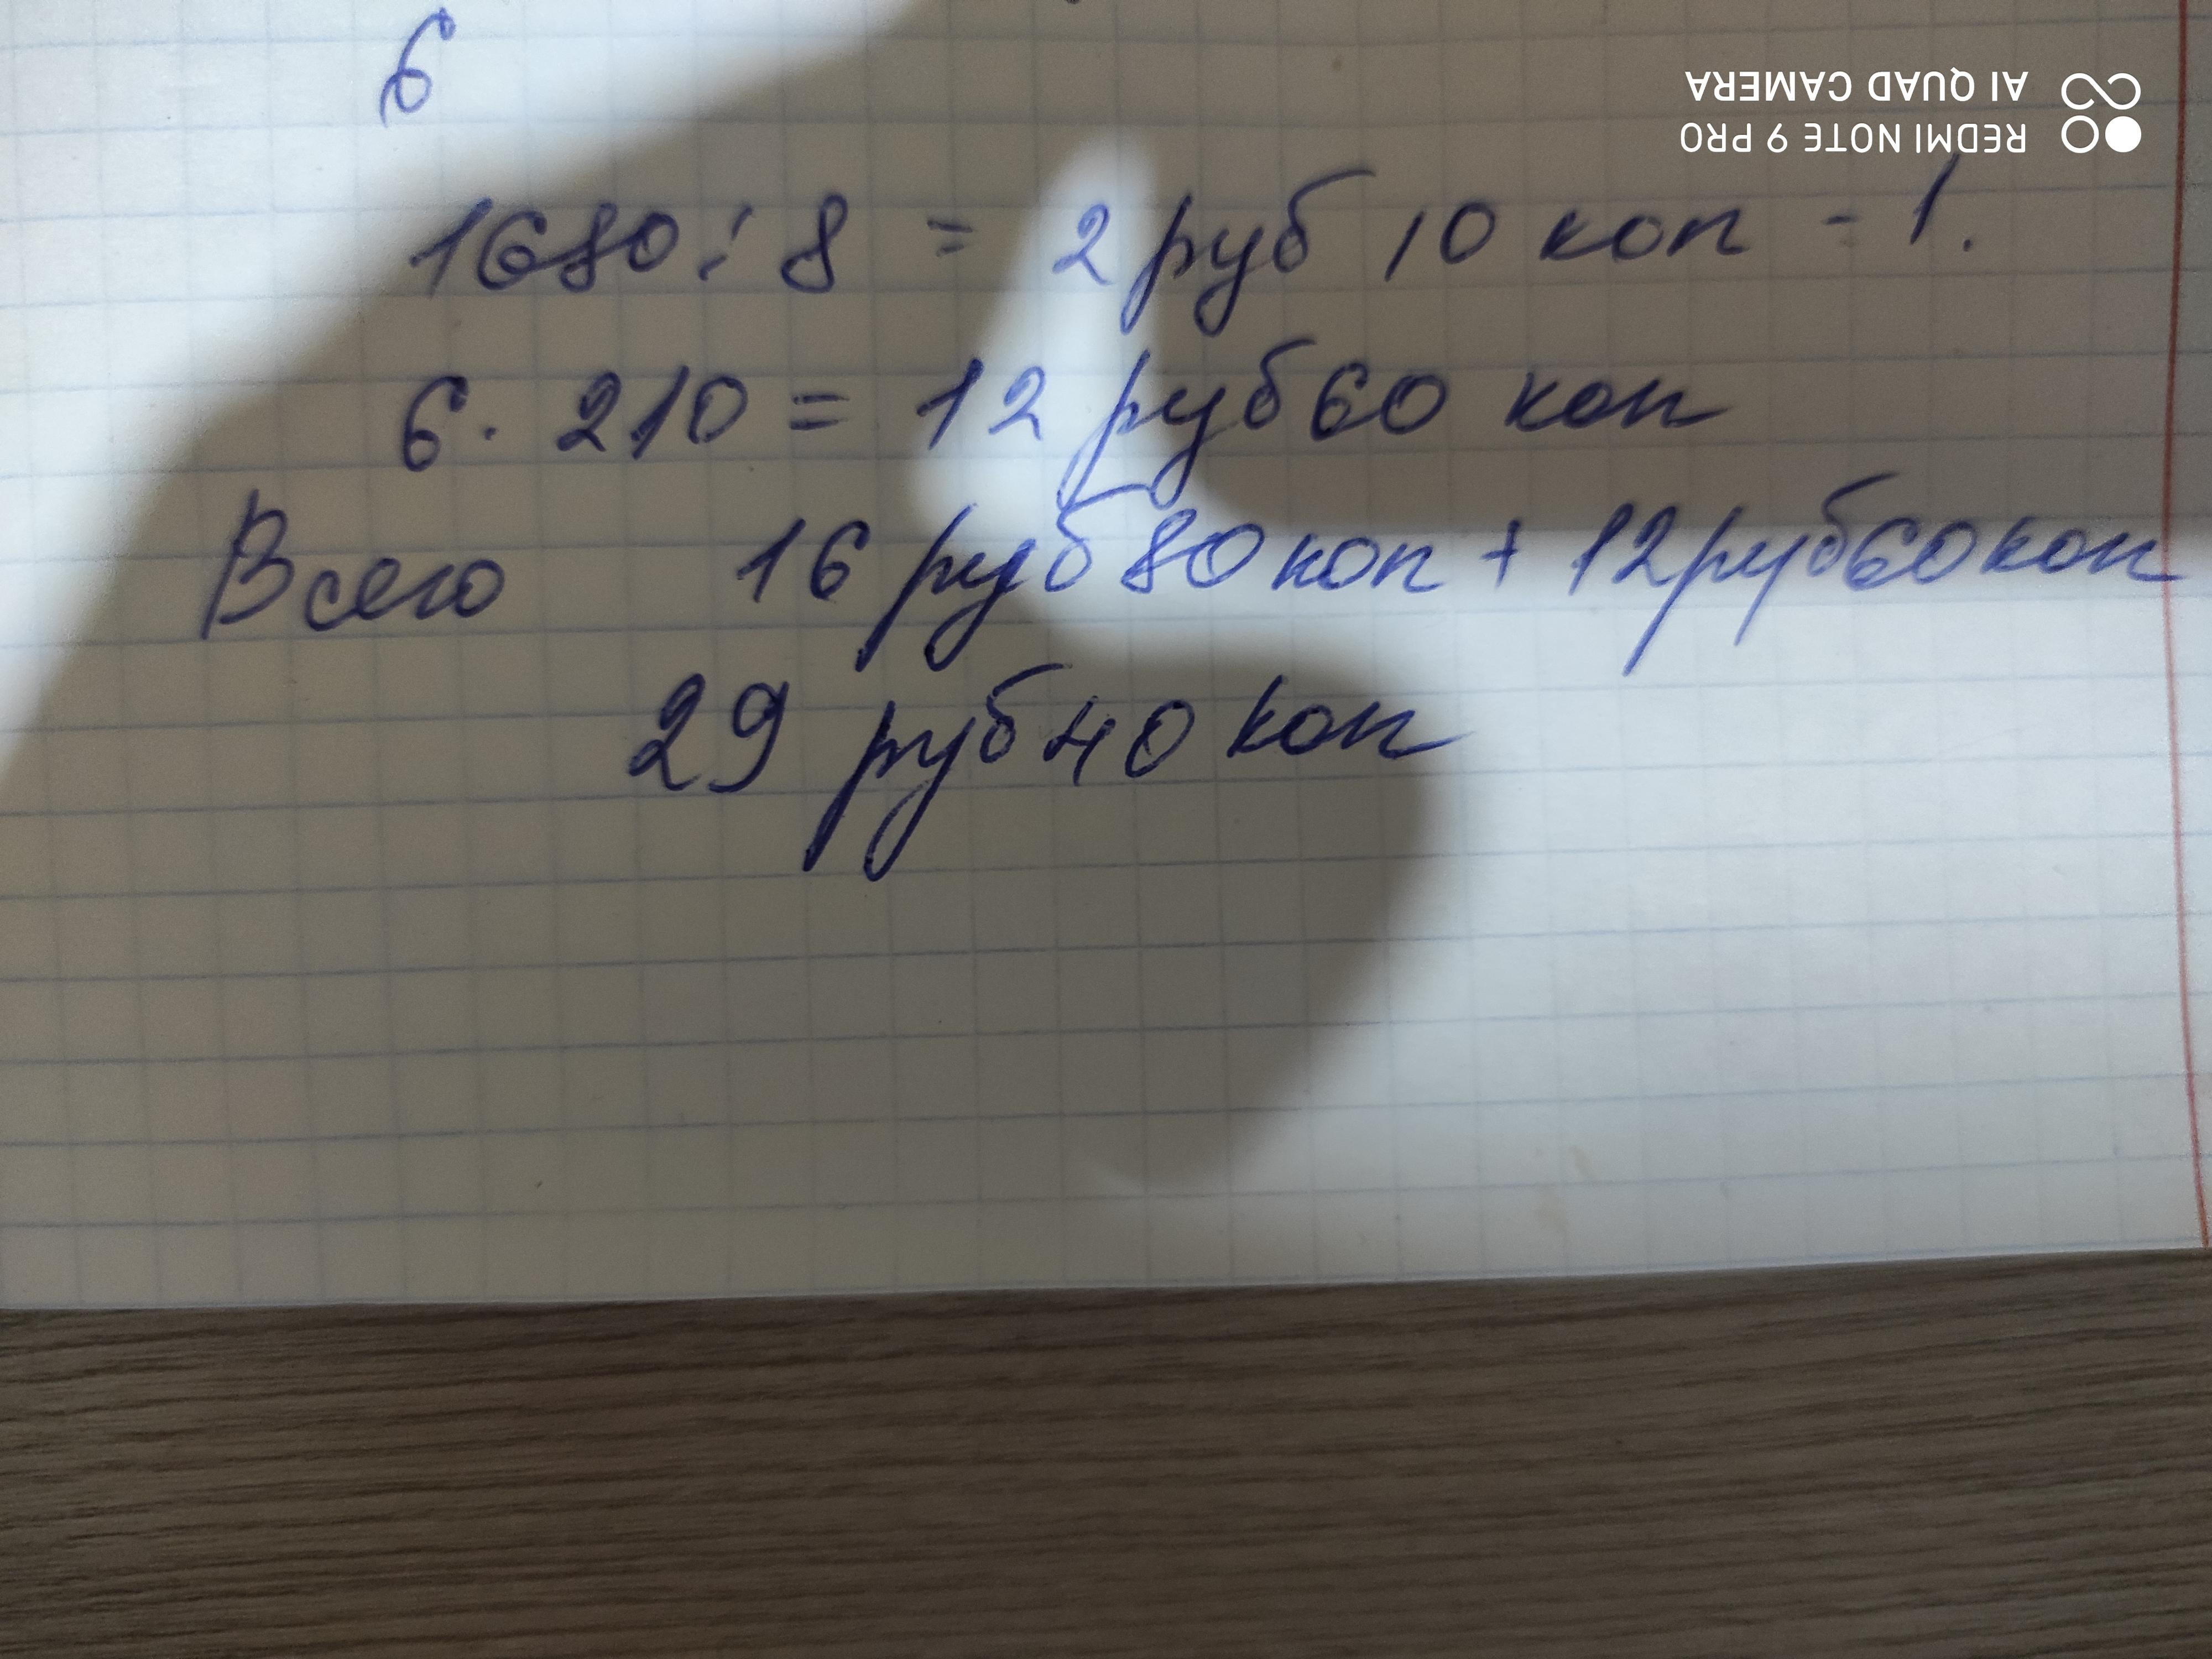 6
REDMI NOTE 9 PRO
AI QUAD CAMERA
1680 : 8 = 2 руб 10 коп - 1.
6 · 210 = 12 руб 60 коп
Всего 16 руб 80 коп + 12 руб 60 коп
29 руб 40 коп